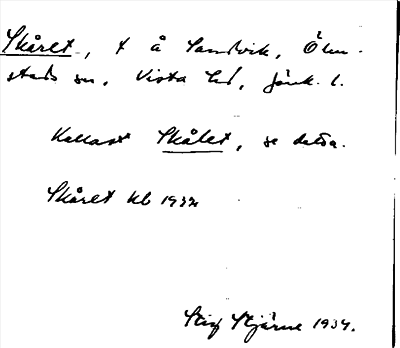 Skåret, t å Sandvik, Ölm-
stads sn, Vista hd, Jönk. l.
Kallast Skålet, se detta.
Skåret kb 1932
Stig Stjärne 1934.